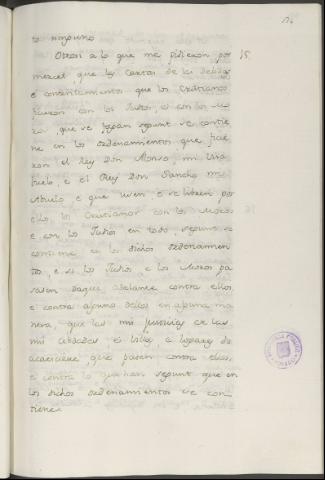 to ninguno
Otrosi a lo que me pidieron por 15
merced que las Cartas de las debdas
e contentamientos que los Cristianos
ficieron con los Judios, o con los Mo
ros, que se fagan segunt se contie
ne en los ordenamientos que ficie
ron el Rey Don Alonso, mi Visa
buelo, e el Rey Don Sancho mi
Abuelo, e que usen e se libren por
ellos los Cristianos con los Moros
e con los Judios en todo, segunt se
contiene en los dichos ordenamien
tos, e si los Judios e los Moros pa
sasen daqui adelante contra ellos
e contra alguno dellos en alguna ma
nera, que las mis Justicias de las
mis cibdades e Villas e logares do
acaesciere que pasen contra ellos,
e contra lo que han segunt que en
los dichos ordenamientos se con
tiene